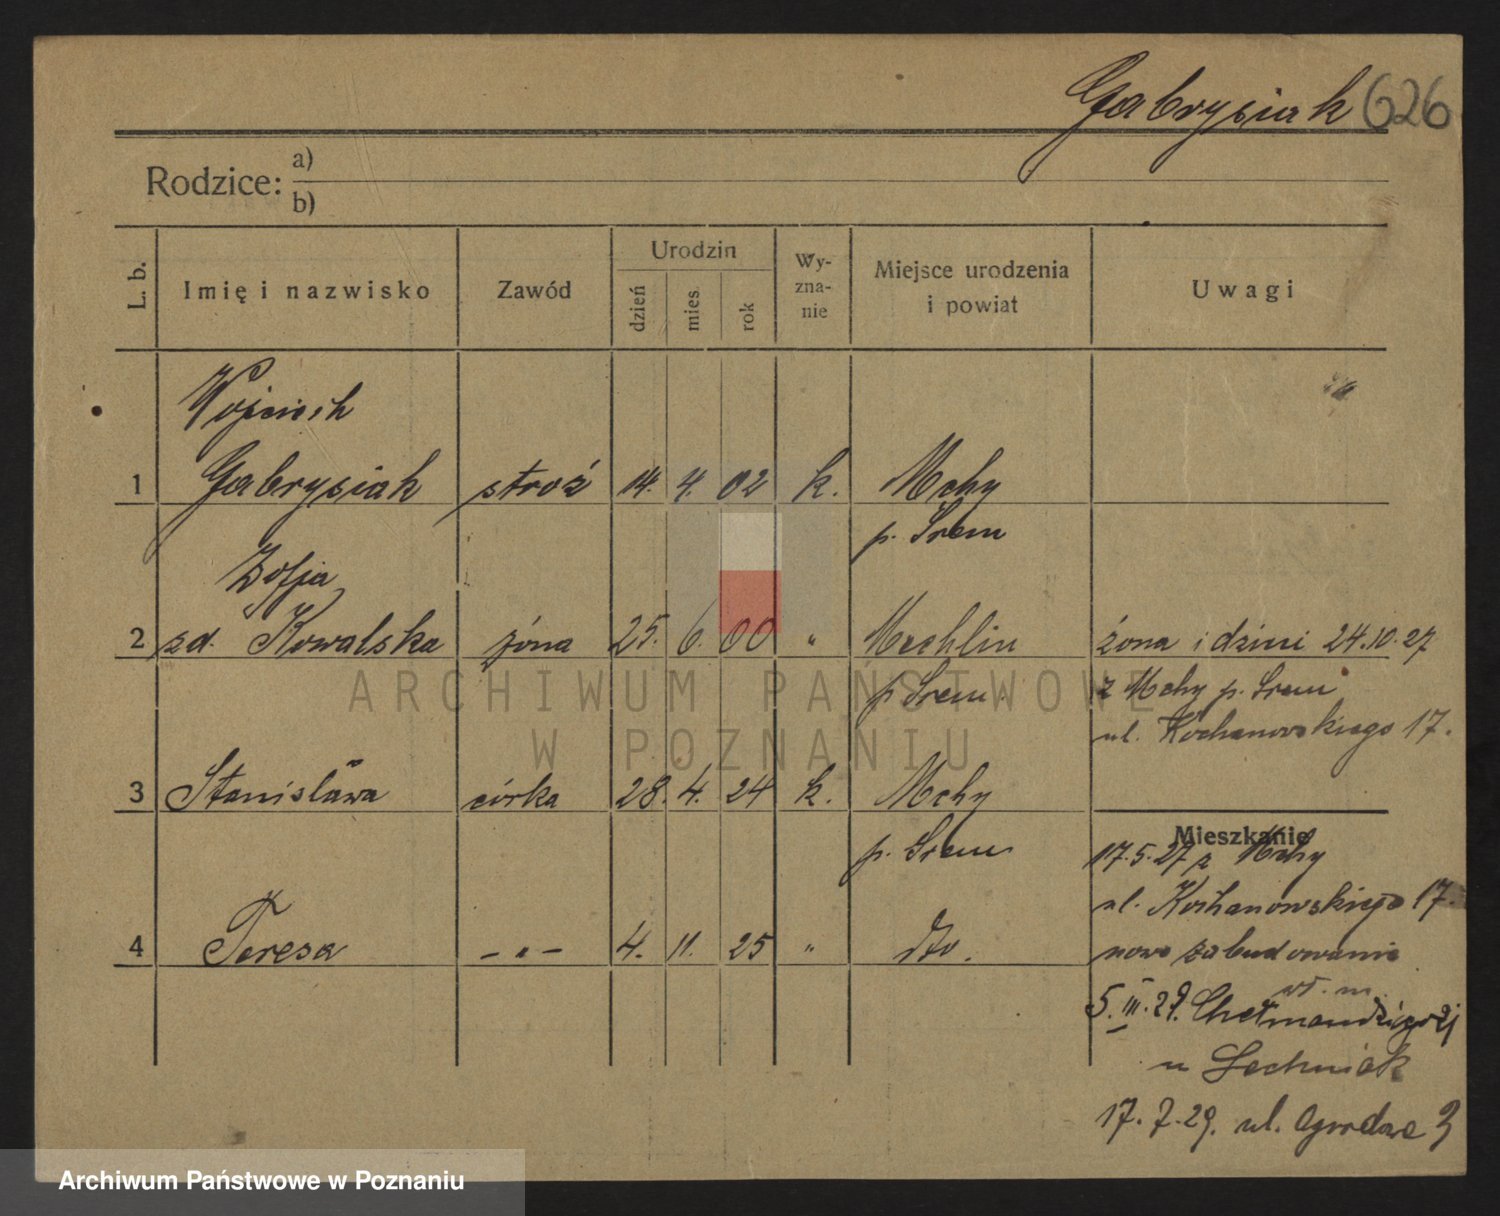 Gabrysiak 626
Rodzice: a)
b)
L. b. Imię i nazwisko Zawód Urodzin dzień mies. rok Wy-zna-nie Miejsce urodzenia i powiat Uwagi
Wojciech
1 Gabrysiak stróż 14. 4. 02 k. Mchy
p. Śrem
Zofja
2 zd. Kowalska żona 25. 6. 00 " Mechlin żona i dzieci 24.10.27
p. Śrem z Mchy p. Śrem
ul. Kochanowskiego 17.
3 Stanisława córka 28. 4. 24 k. Mchy
p. Śrem
Mieszkanie
17.5.27 z Mchy
ul. Kochanowskiego 17.
nowe zabudowanie
4 Teresa — " — 4. 11. 25 " dto.
5.III.29.
u Lechniak
17.7.29. ul. Ogrodowa 3
ARCHIWUM PAŃSTWOWE
W POZNANIU
Archiwum Państwowe w Poznaniu